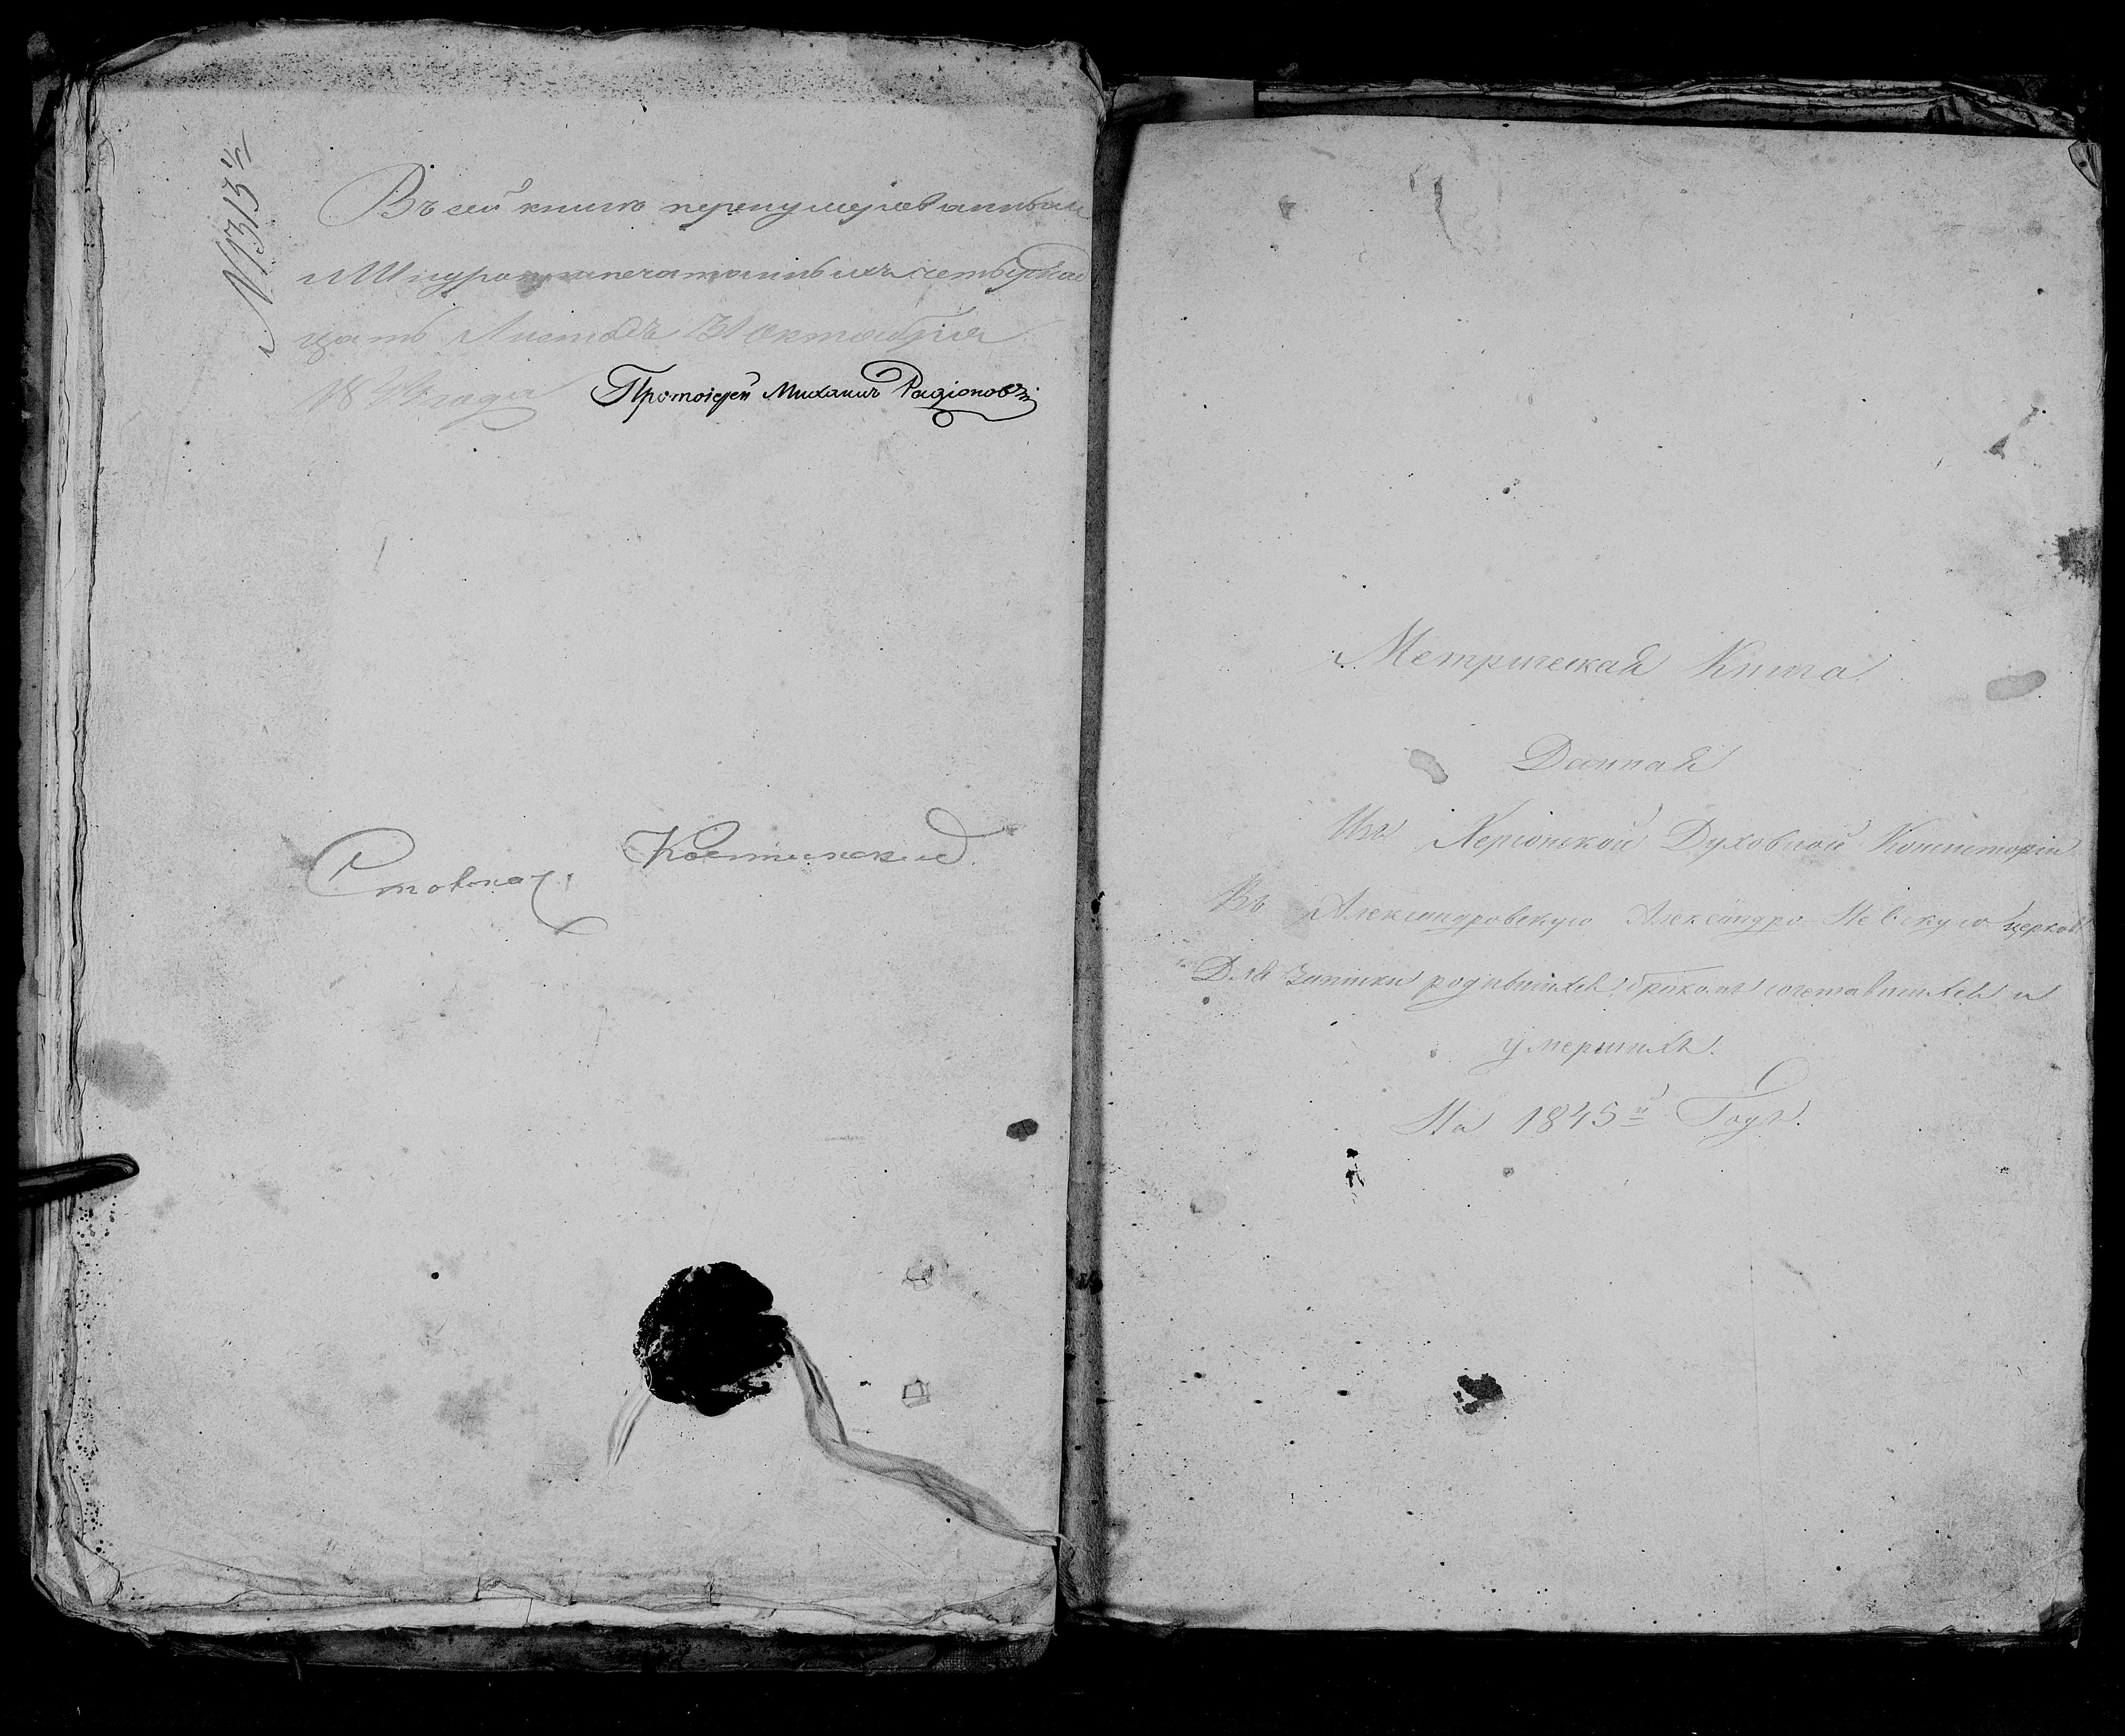 N 1315 ½
Въ сей книгѣ перенумерованныхъ
и Шнуромъ припечатанныхъ четырнад
цать Листовъ 31 Октября
1844 года Протоіерей Михаилъ Радіоновъ
Костинский
Метрическая Книга
Данная
Изъ Херсонской Духовной Консисторіи
Въ Александровскую Александро-Невскую церковь
Для Записки родившихся, бракомъ сочетавшихся и
умершихъ.
На 1845й Годъ.